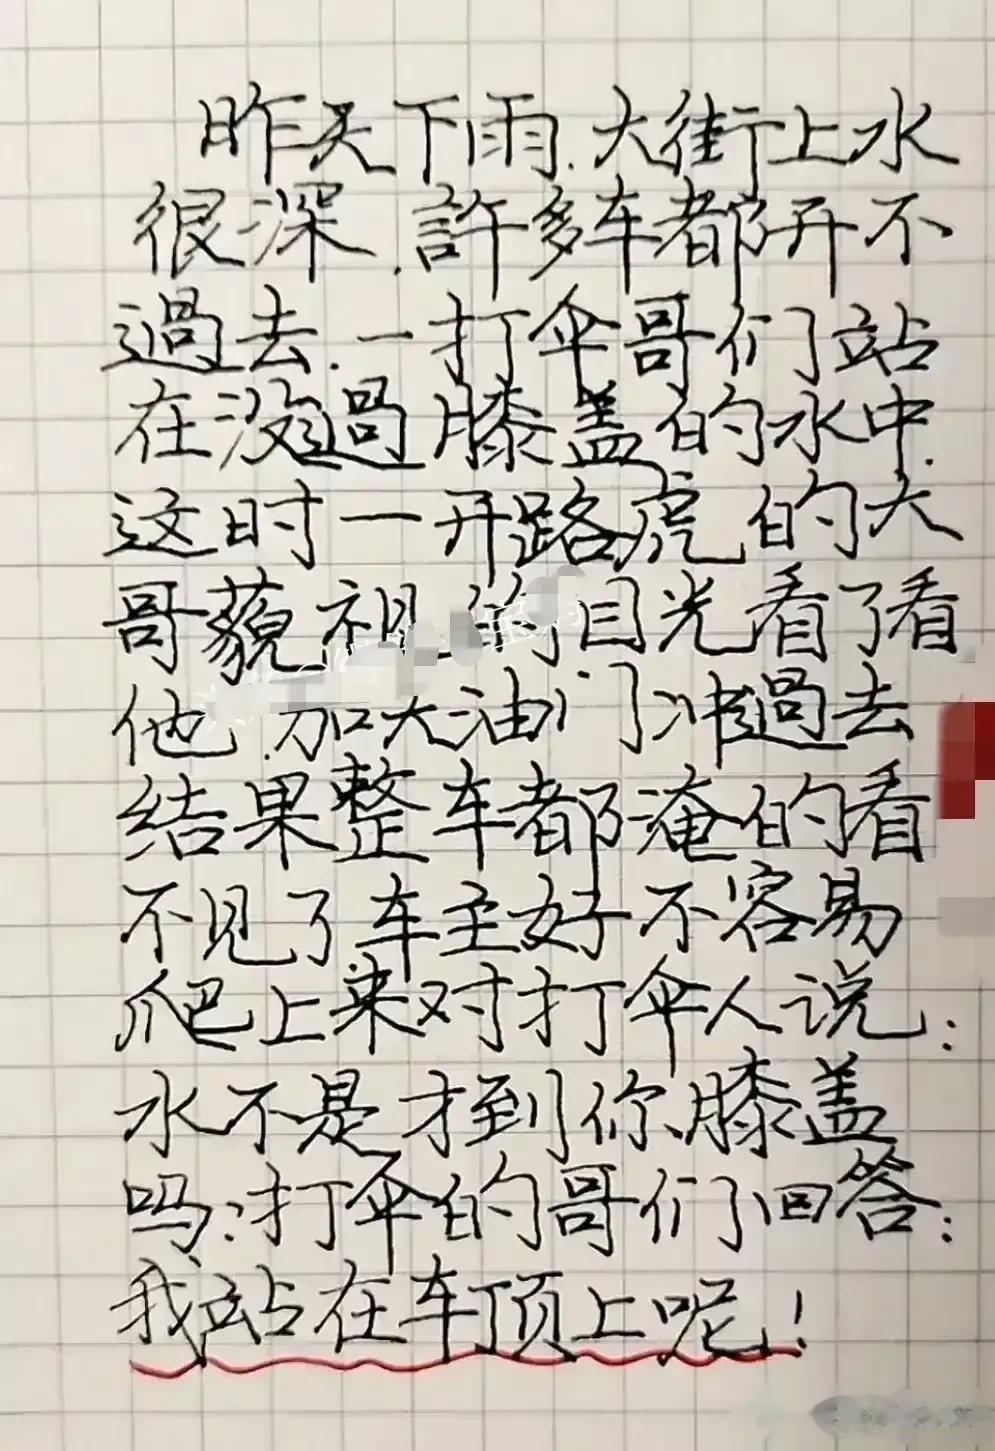 昨天下雨.大街上水
很深.許多车都开不
過去.一打伞哥们站
在没過膝盖的水中.
这时一开路虎的大
哥藐视的目光看了看
他.加大油门冲過去
结果整车都淹的看
不见了车主好不容易
爬上来对打伞人说:
水不是才到你膝盖
吗:打伞的哥们回答:
我站在车顶上呢!